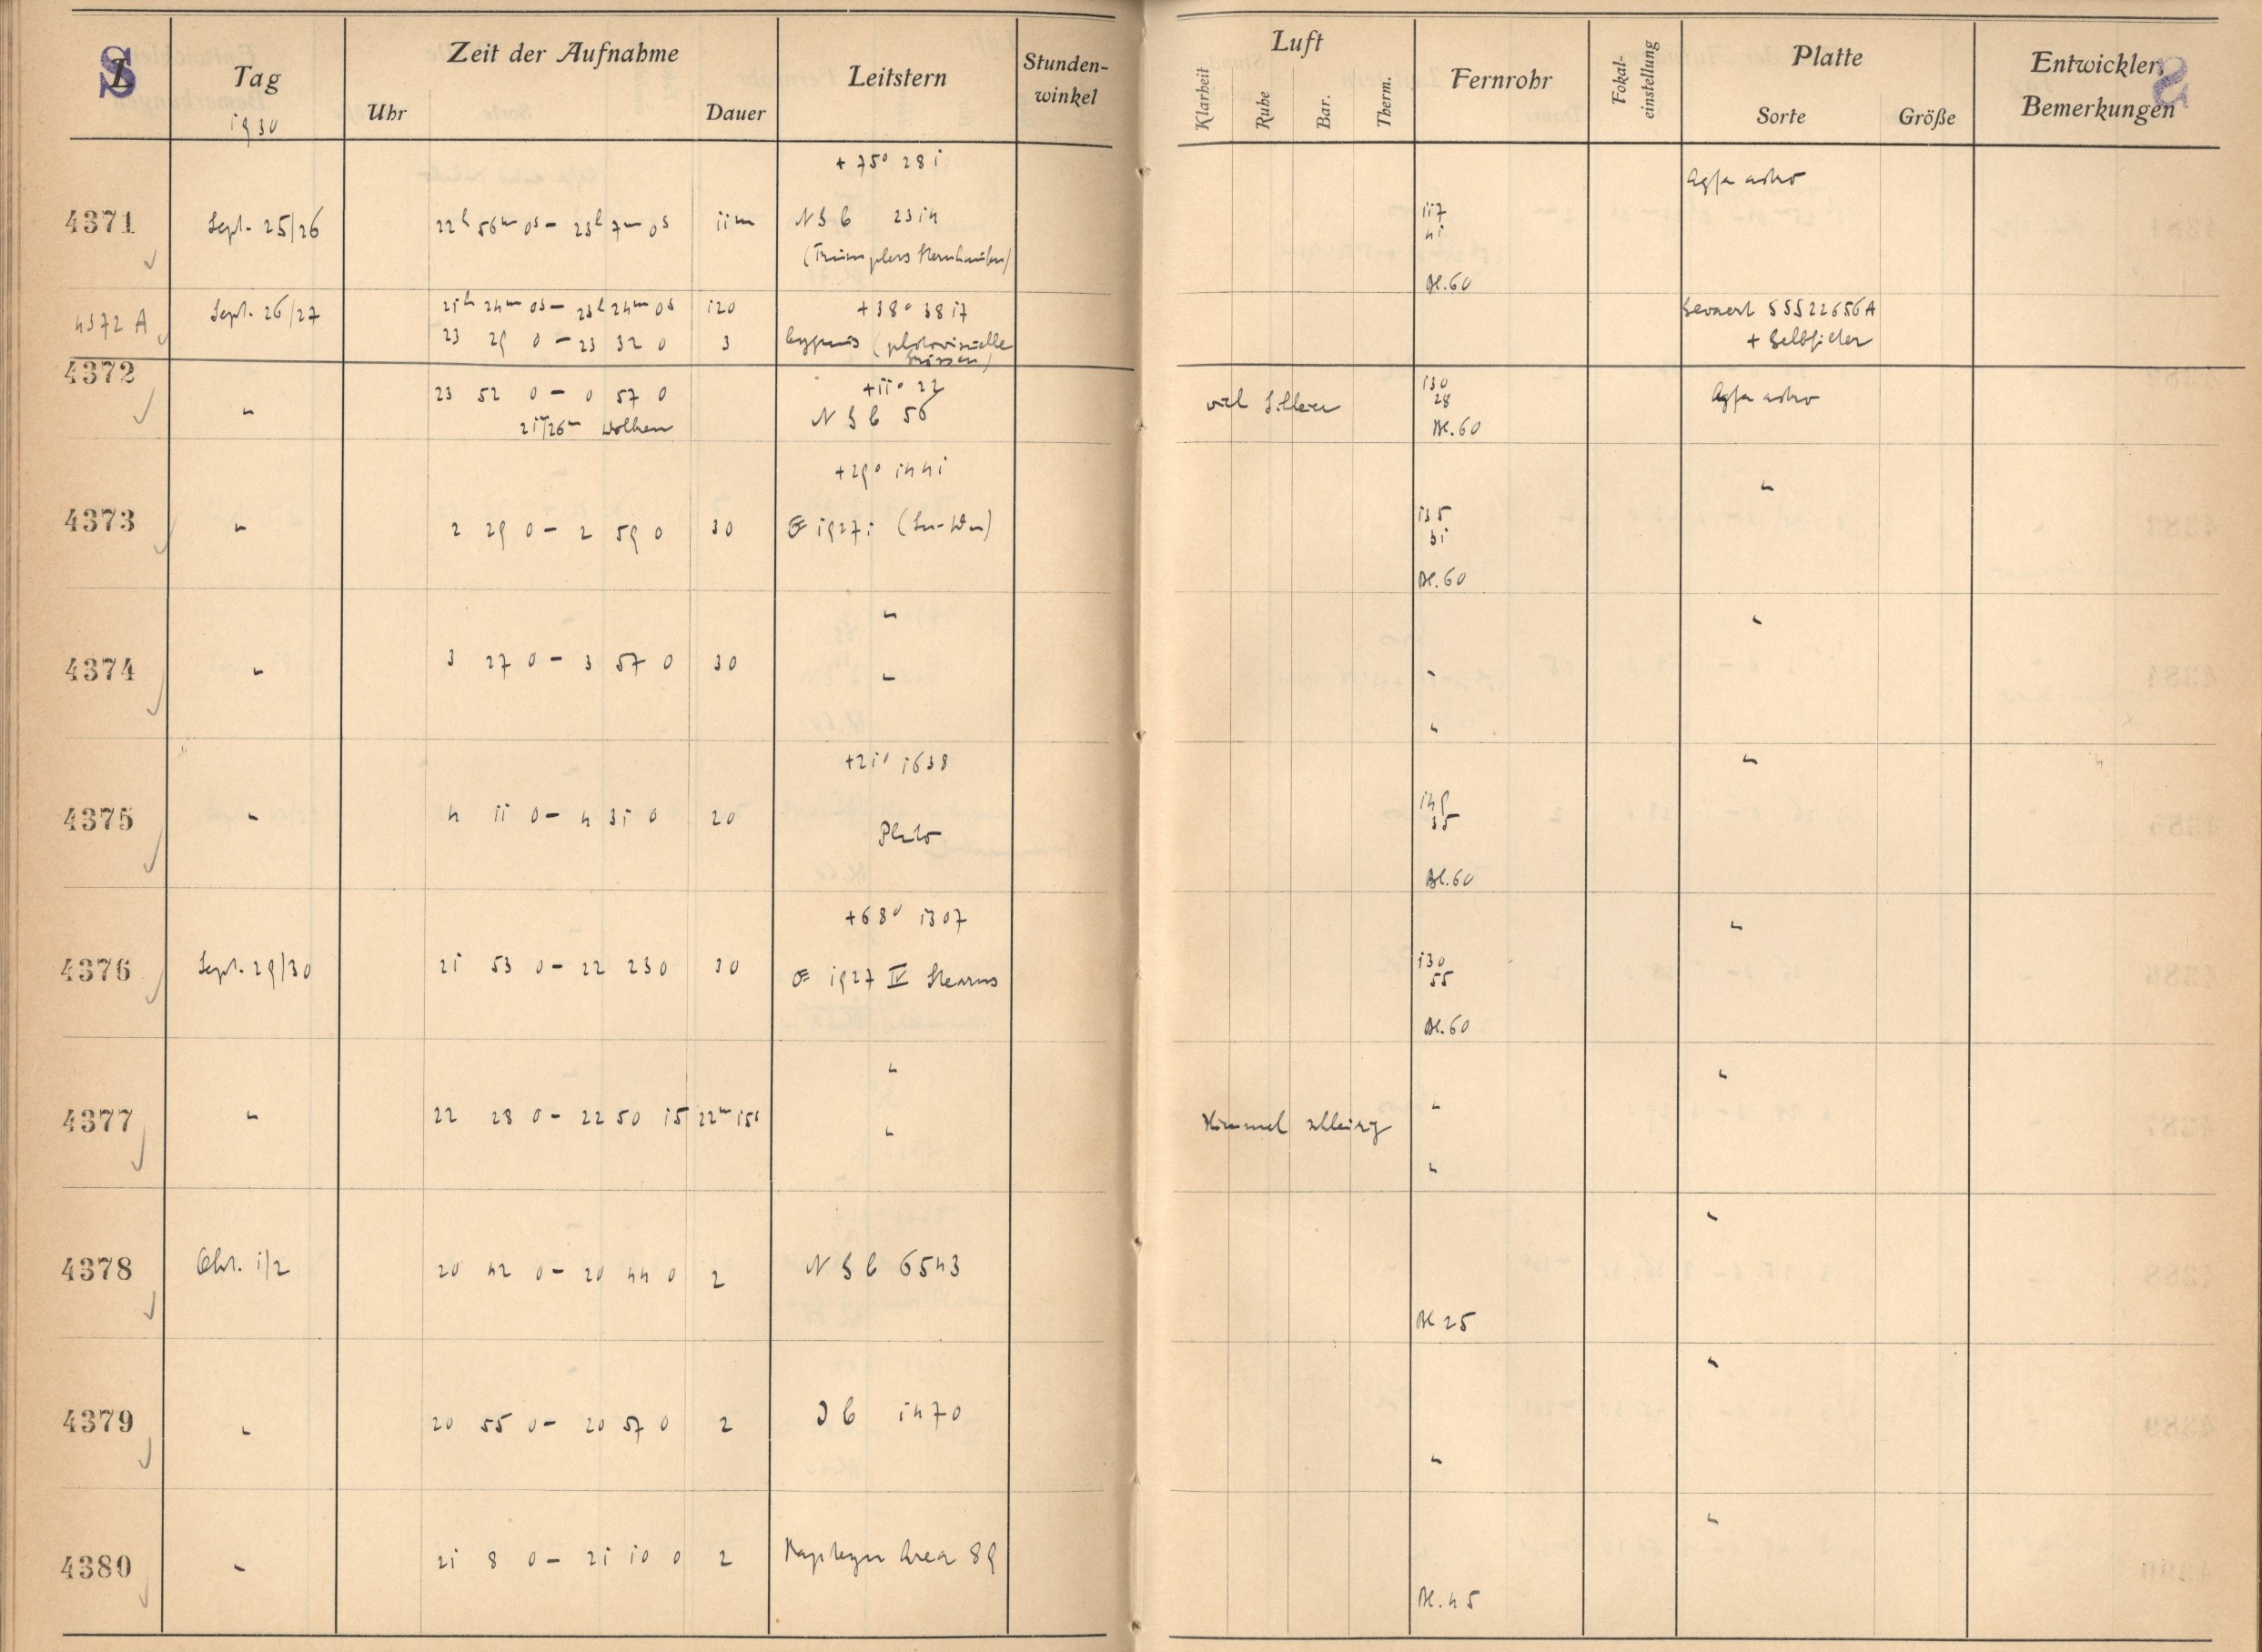 S
L Tag Zeit der Aufnahme Leitstern Stunden-winkel Luft Fernrohr Fokal-einstellung Platte Entwickler, Bemerkungen
1930 Uhr Dauer Klarheit Ruhe Bar. Therm. Sorte Größe
+75° 281 Agfa astro
4371 Sept. 25/26 22h 56m 0s – 23h 7m 0s 11m N G C 2314 117
41
(Trumplers Sternhaufen) Bl. 60
4372 A Sept. 26/27 21h 24m 0s – 23h 24m 0s 120 +38° 3817 Gevaert SSS 22656A
23 29 0 – 23 32 0 3 Cygnis (photovisuelle Grössen) + Gelbfilter
4372 " 23 52 0 – 0 57 0 +11° 22 130 Agfa astro
28
Wolken N G C 56 Bl. 60
+29° 1441 "
4373 " 2 29 0 – 2 59 0 30 1927 135
31
Bl. 60
" "
4374 " 3 27 0 – 3 57 0 30 " "
"
+21° 1638 "
4375 " 4 11 0 – 4 31 0 20 Pluto 149
35
Bl. 60
+68° 1307 "
4376 Sept. 29/30 21 53 0 – 22 23 0 30 1927 IV Stearns 130
55
Bl. 60
" "
4377 " 22 28 0 – 22 50 15 22m 15s " Himmel "
"
"
4378 Okt. 1/2 20 42 0 – 20 44 0 2 N G C 6543
Bl. 25
"
4379 " 20 55 0 – 20 57 0 2 J C 1470
"
"
4380 " 21 8 0 – 21 10 0 2 Kapteyn Area 89
Bl. 45